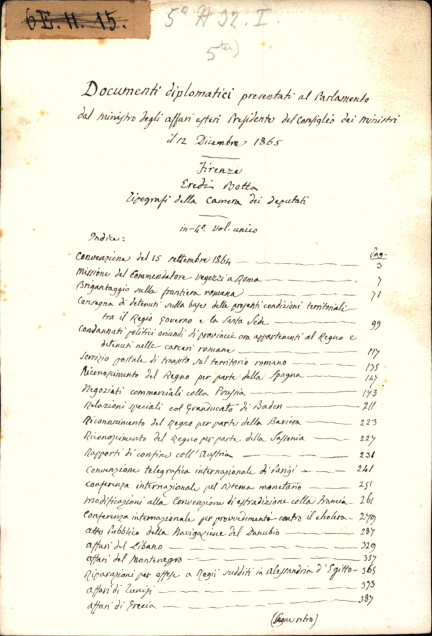 6 E. H. 15.
5ª H 92. I.
5 ter)
Documenti diplomatici presentati al Parlamento
dal ministro degli affari esteri Presidente del Consiglio dei ministri
il 12 Dicembre 1865
Firenze
Eredi Botta
Tipografi della camera dei deputati
in-4º vol. unico
Indice: Pag.
Convenzione del 15 settembre 1864 — 3
Missione del Commendatore Vegezzi a Roma — 7
Brigantaggio sulla frontiera romana — 71
Consegna di detenuti sulla base delle presenti condizioni territoriali
tra il Regio Governo e la Santa Sede — 99
Condannati politici oriundi di provincie ora appartenenti al Regno e
detenuti nelle carceri romane — 117
Servizio postale di transito sul territorio romano — 135
Riconoscimento del Regno per parte della Spagna — 147
Negoziati commerciali colla Prussia — 173
Relazioni speciali col Granducato di Baden — 211
Riconoscimento del Regno per parte della Baviera — 223
Riconoscimento del Regno per parte della Sassonia — 227
Rapporti di confine coll'Austria — 231
Convenzione telegrafica internazionale di Parigi — 241
Conferenza internazionale pel sistema monetario — 251
Modificazioni alla Convenzione di estradizione colla Francia — 261
Conferenza internazionale per provvedimenti contro il cholera — 279
Atto Pubblico della Navigazione del Danubio — 287
Affari del Libano — 329
Affari del Montenegro — 357
Riparazioni per offese a Regii sudditi in Alessandria d'Egitto — 365
Affari di Tunisi — 373
Affari di Grecia — 387
(Segue retro)